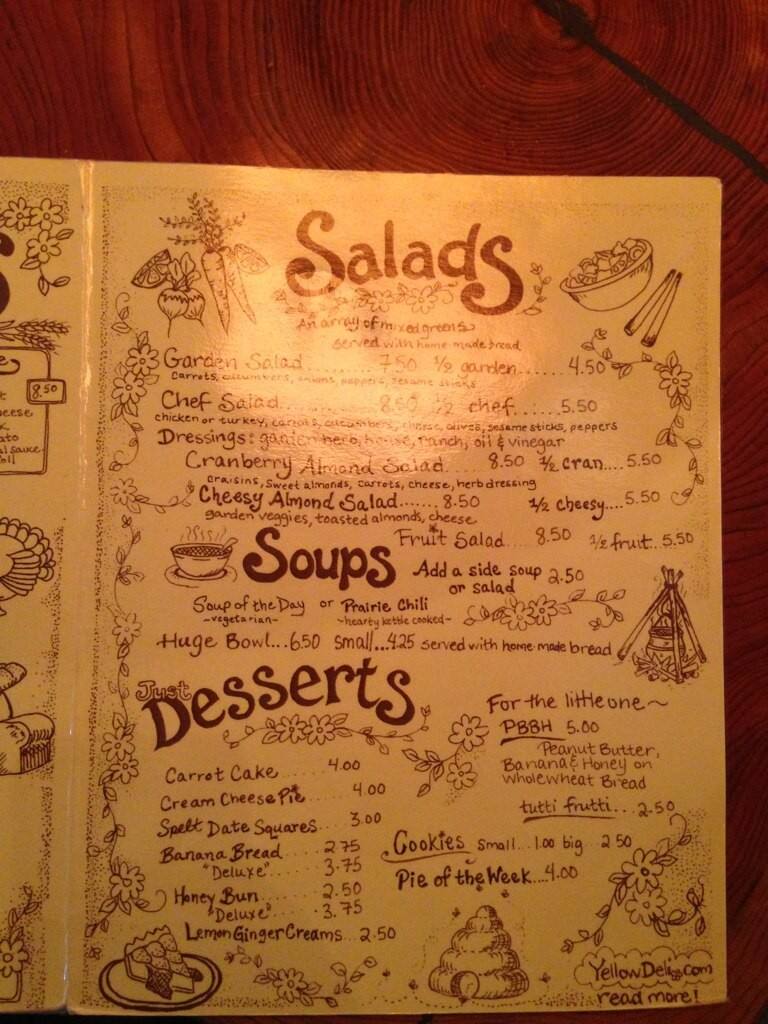 S
e
8.50
t
cheese
k
ato
al sauce
oll
Salads
An array of mixed greens
served with home-made bread
Garden Salad..........7.50 1/2 garden........4.50
carrots, cucumbers, onions, peppers, sesame sticks
Chef Salad..............8.50 1/2 chef.......5.50
chicken or turkey, carrots, cucumbers, cheese, olives, sesame sticks, peppers
Dressings: garden herb, house, ranch, oil & vinegar
Cranberry Almond Salad.....8.50 1/2 cran....5.50
craisins, sweet almonds, carrots, cheese, herb dressing
Cheesy Almond Salad.......8.50 1/2 cheesy....5.50
garden veggies, toasted almonds, cheese
Fruit Salad.....8.50 1/2 fruit..5.50
Soups
Add a side soup or salad 2.50
Soup of the Day or Prairie Chili
-vegetarian- -hearty kettle cooked-
Huge Bowl...6.50 small...4.25 served with home-made bread
Just Desserts
Carrot Cake......4.00
Cream Cheese Pie.....4.00
Spelt Date Squares...3.00
Banana Bread.....2.75
"Deluxe".....3.75
Honey Bun.....2.50
"Deluxe".....3.75
Lemon Ginger Creams...2.50
For the little one~
PBBH 5.00
Peanut Butter,
Banana & Honey on
whole wheat Bread
tutti frutti...2.50
Cookies small...1.00 big 2.50
Pie of the Week...4.00
YellowDeli.com
read more!